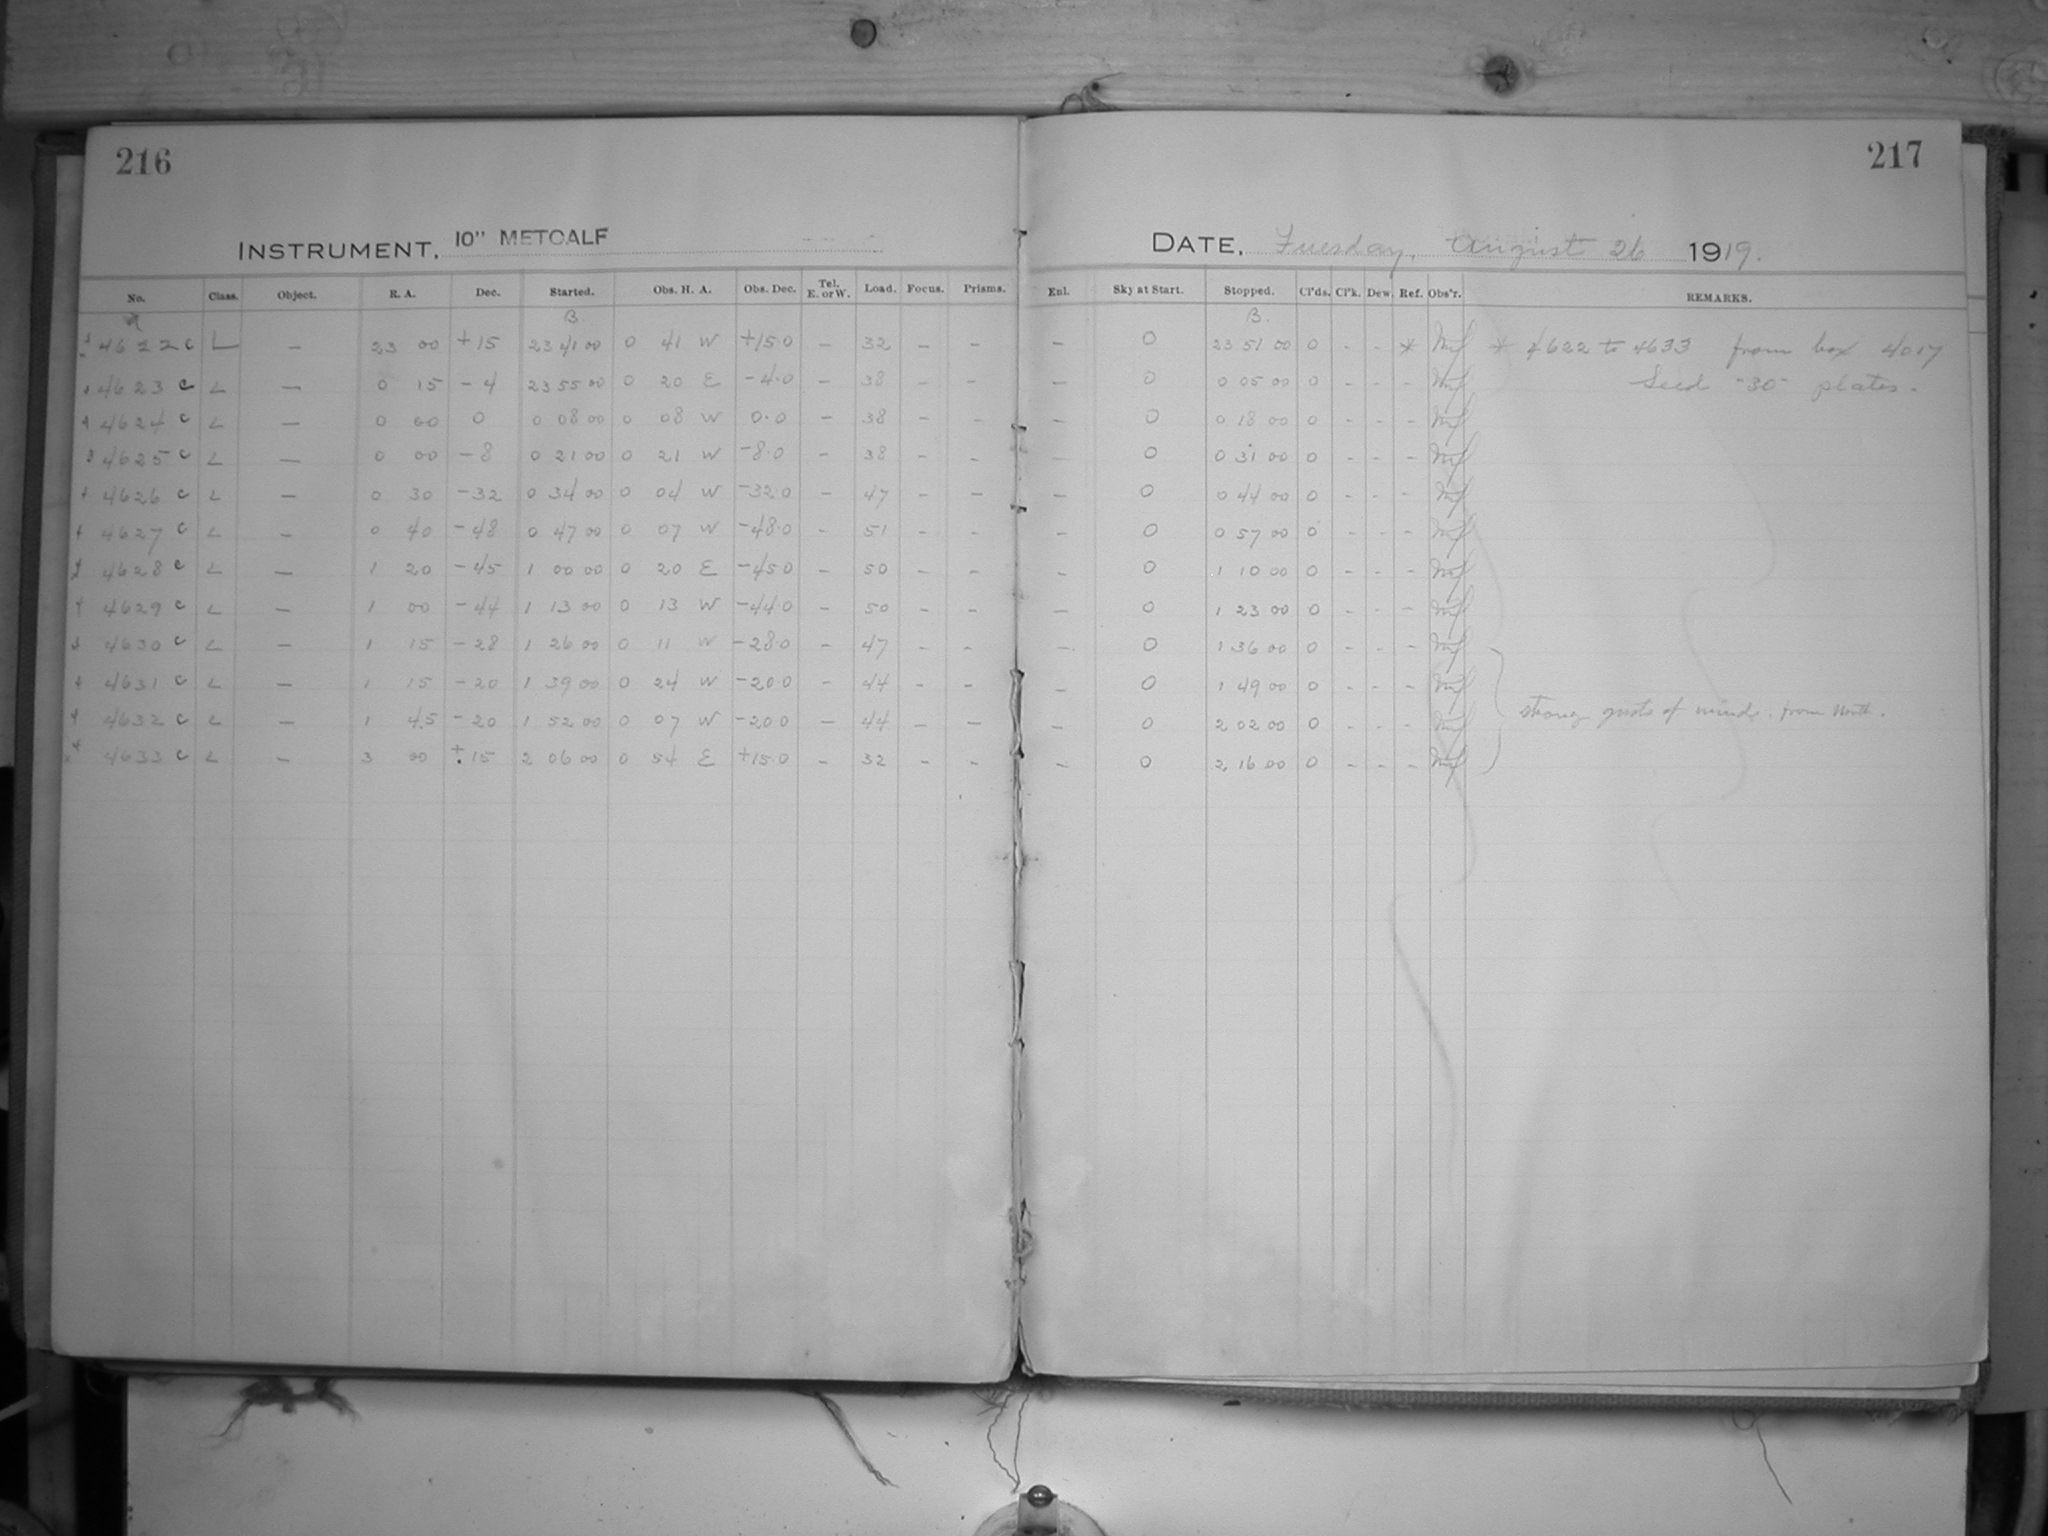 216
217
INSTRUMENT, 10" METCALF
DATE, Tuesday, August 26 1919.
No. Class. Object. R. A. Dec. Started. Obs. H. A. Obs. Dec. Tel. E. or W. Load. Focus. Prisms. Enl. Sky at Start. Stopped. Cl'ds. Cl'k. Dew. Ref. Obs'r. REMARKS.
B. B.
4622 c L — 23 00 +15 23 41 00 0 41 W +15.0 — 32 — — — 0 23 51 00 0 - - * * 4622 to 4633 from box 4017
4623 c L — 0 15 -4 23 55 00 0 20 E -4.0 — 38 — — — 0 0 05 00 0 - - - Seed "30" plates.
4624 c L — 0 00 0 0 08 00 0 08 W 0.0 — 38 — — — 0 0 18 00 0 - - -
4625 c L — 0 00 -8 0 21 00 0 21 W -8.0 — 38 — — — 0 0 31 00 0 - - -
4626 c L — 0 30 -32 0 34 00 0 04 W -32.0 — 47 — — — 0 0 44 00 0 - - -
4627 c L — 0 40 -48 0 47 00 0 07 W -48.0 — 51 — — — 0 0 57 00 0 - - -
4628 c L — 1 20 -45 1 00 00 0 20 E -45.0 — 50 — — — 0 1 10 00 0 - - -
4629 c L — 1 00 -44 1 13 00 0 13 W -44.0 — 50 — — — 0 1 23 00 0 - - -
4630 c L — 1 15 -28 1 26 00 0 11 W -28.0 — 47 — — — 0 1 36 00 0 - - -
4631 c L — 1 15 -20 1 39 00 0 24 W -20.0 — 44 — — — 0 1 49 00 0 - - -
4632 c L — 1 45 -20 1 52 00 0 07 W -20.0 — 44 — — — 0 2 02 00 0 - - - strong gusts of wind. from North.
4633 c L — 3 00 +15 2 06 00 0 54 E +15.0 — 32 — — — 0 2 16 00 0 - - -